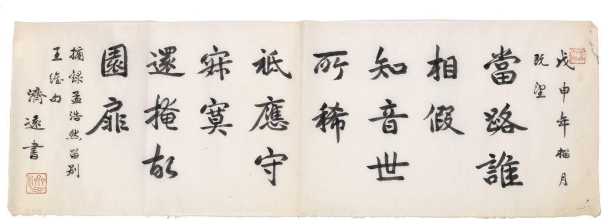 戊申年獵月
既望
當路誰
相假
知音世
所稀
祗應守
寂寞
還掩故
園扉
摘錄孟浩然留別
王維句
濟遠書